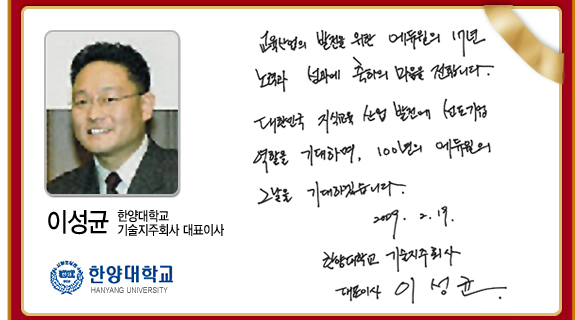 교육산업의 발전을 위한 에듀윌의 17년
노력과 성과에 축하의 마음을 전합니다.
대한민국 지식교육 산업 발전에 선도기업
역할을 기대하며, 100년의 에듀윌의
그날을 기대하겠습니다.
2009. 2. 19.
한양대학교 기술지주회사
대표이사 이성균
이성균 한양대학교
기술지주회사 대표이사
한양대학교
HANYANG UNIVERSITY